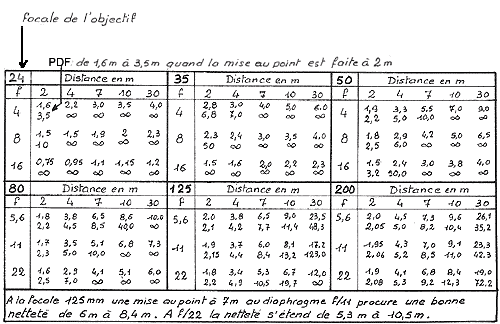 focale de l'objectif
PDF: de 1,6m à 3,5m quand la mise au point est faite à 2m
24 Distance en m 35 Distance en m 50 Distance en m
f 2 4 7 10 30 f 2 4 7 10 30 f 2 4 7 10 30
4 1,6 2,2 3,0 3,5 4,0 2,8 3,0 4,0 5,0 6,0 1,9 3,3 5,5 7,0 9,0
3,5 ∞ ∞ ∞ ∞ 4 6,8 7,0 ∞ ∞ ∞ 4 2,2 5,0 10,0 ∞ ∞
8 1,5 1,5 1,9 2 2,3 8 2,3 2,4 3,0 3,5 4,0 8 1,8 2,9 4,2 5,0 6,5
10 ∞ ∞ ∞ ∞ 50 ∞ ∞ ∞ ∞ 2,5 6,0 ∞ ∞ ∞
16 0,75 0,95 1,1 1,15 1,2 16 1,5 1,6 2,0 2,2 2,3 16 1,5 2,4 3,0 3,8 4,0
∞ ∞ ∞ ∞ ∞ ∞ ∞ ∞ ∞ ∞ 3,2 50,0 ∞ ∞ ∞
80 Distance en m 125 Distance en m 200 Distance en m
f 2 4 7 10 30 f 2 4 7 10 30 f 2 4 7 10 30
5,6 1,8 3,8 6,5 8,6 10,0 5,6 2,0 3,8 6,5 9,0 23,5 5,6 2,0 4,5 7,3 9,6 26,1
2,2 4,5 8,5 ∞ 2,1 4,2 7,7 11,4 48,3 2,05 5,0 8,2 10,4 35,2
11 1,7 3,5 5,1 6,8 7,3 11 1,9 3,7 6,0 8,1 17,2 11 1,95 4,3 7,0 9,1 23,3
2,3 5,0 10,0 ∞ ∞ 2,15 4,4 8,4 13,2 123,0 2,06 5,2 8,5 11,0 42,3
22 1,6 2,9 4,1 5,1 6,0 22 1,8 3,4 5,3 6,7 12,0 22 1,9 4,1 6,8 8,4 19,0
2,2 7,0 ∞ ∞ ∞ 2,2 4,9 10,5 19,7 ∞ 2,08 5,3 9,2 12,3 72,2
A la focale 125mm une mise au point à 7m au diaphragme f/11 procure une bonne
netteté de 6m à 8,4m. A f/22 la netteté s'étend de 5,3m à 10,5m.